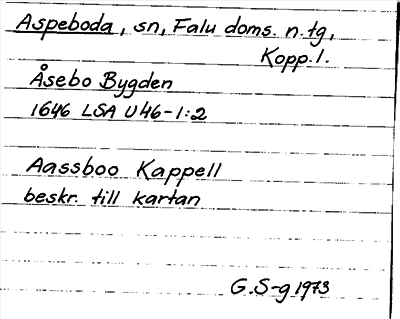 Aspeboda, sn, Falu doms. n. tg,
Kopp. l.
Åsebo Bygden
1646 LSA U46-1:2
Aassboo Kappell
beskr. till kartan
G. S-g 1973